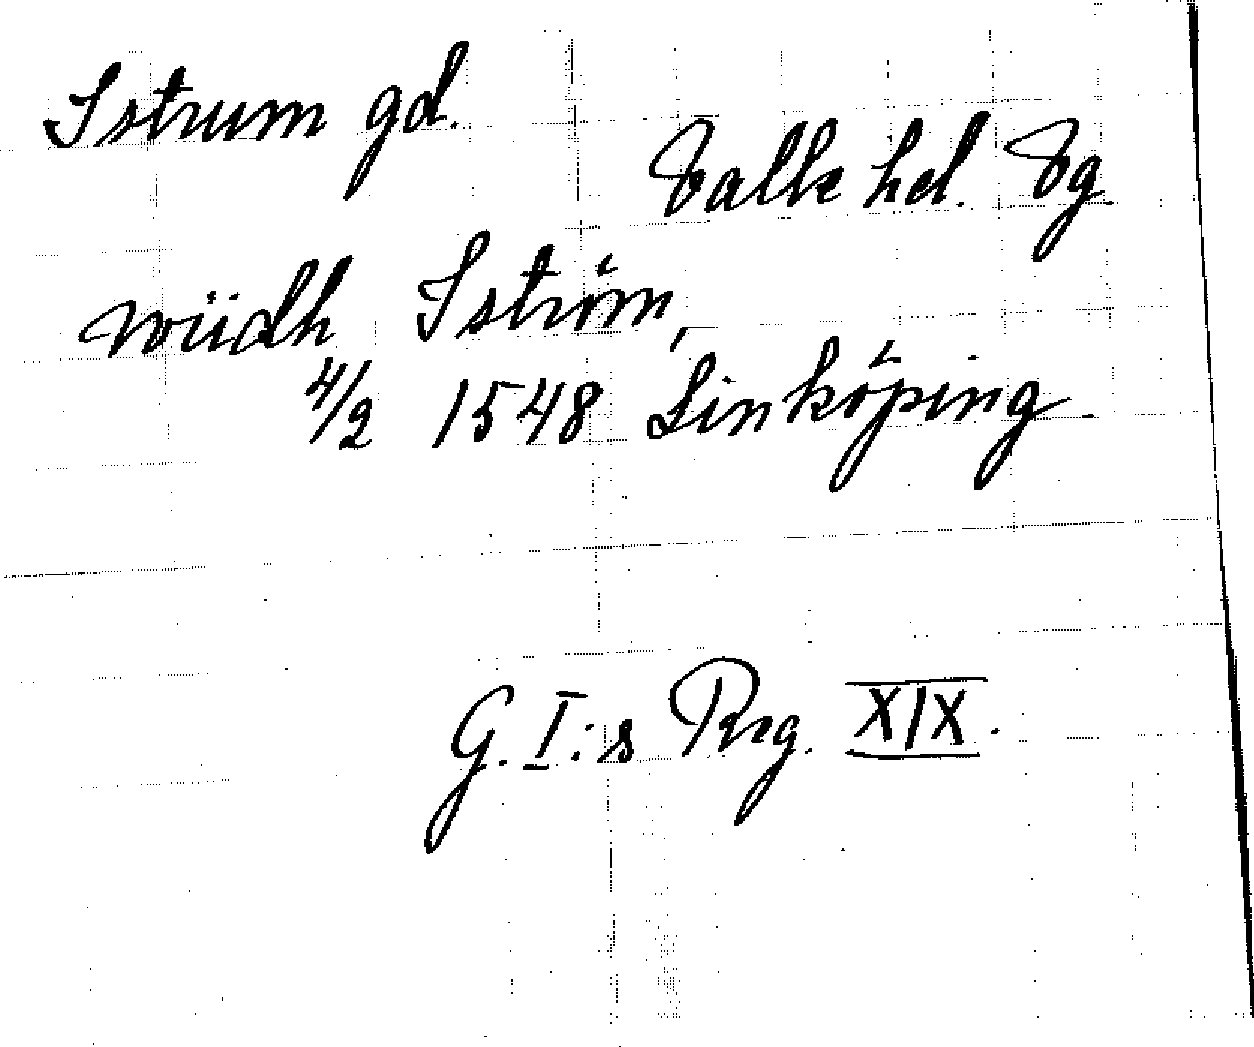 Istrum gd.
Valle hd. Vg
wiidh Iström,
4/2 1548 Linköping
G. I:s Reg. XIX.